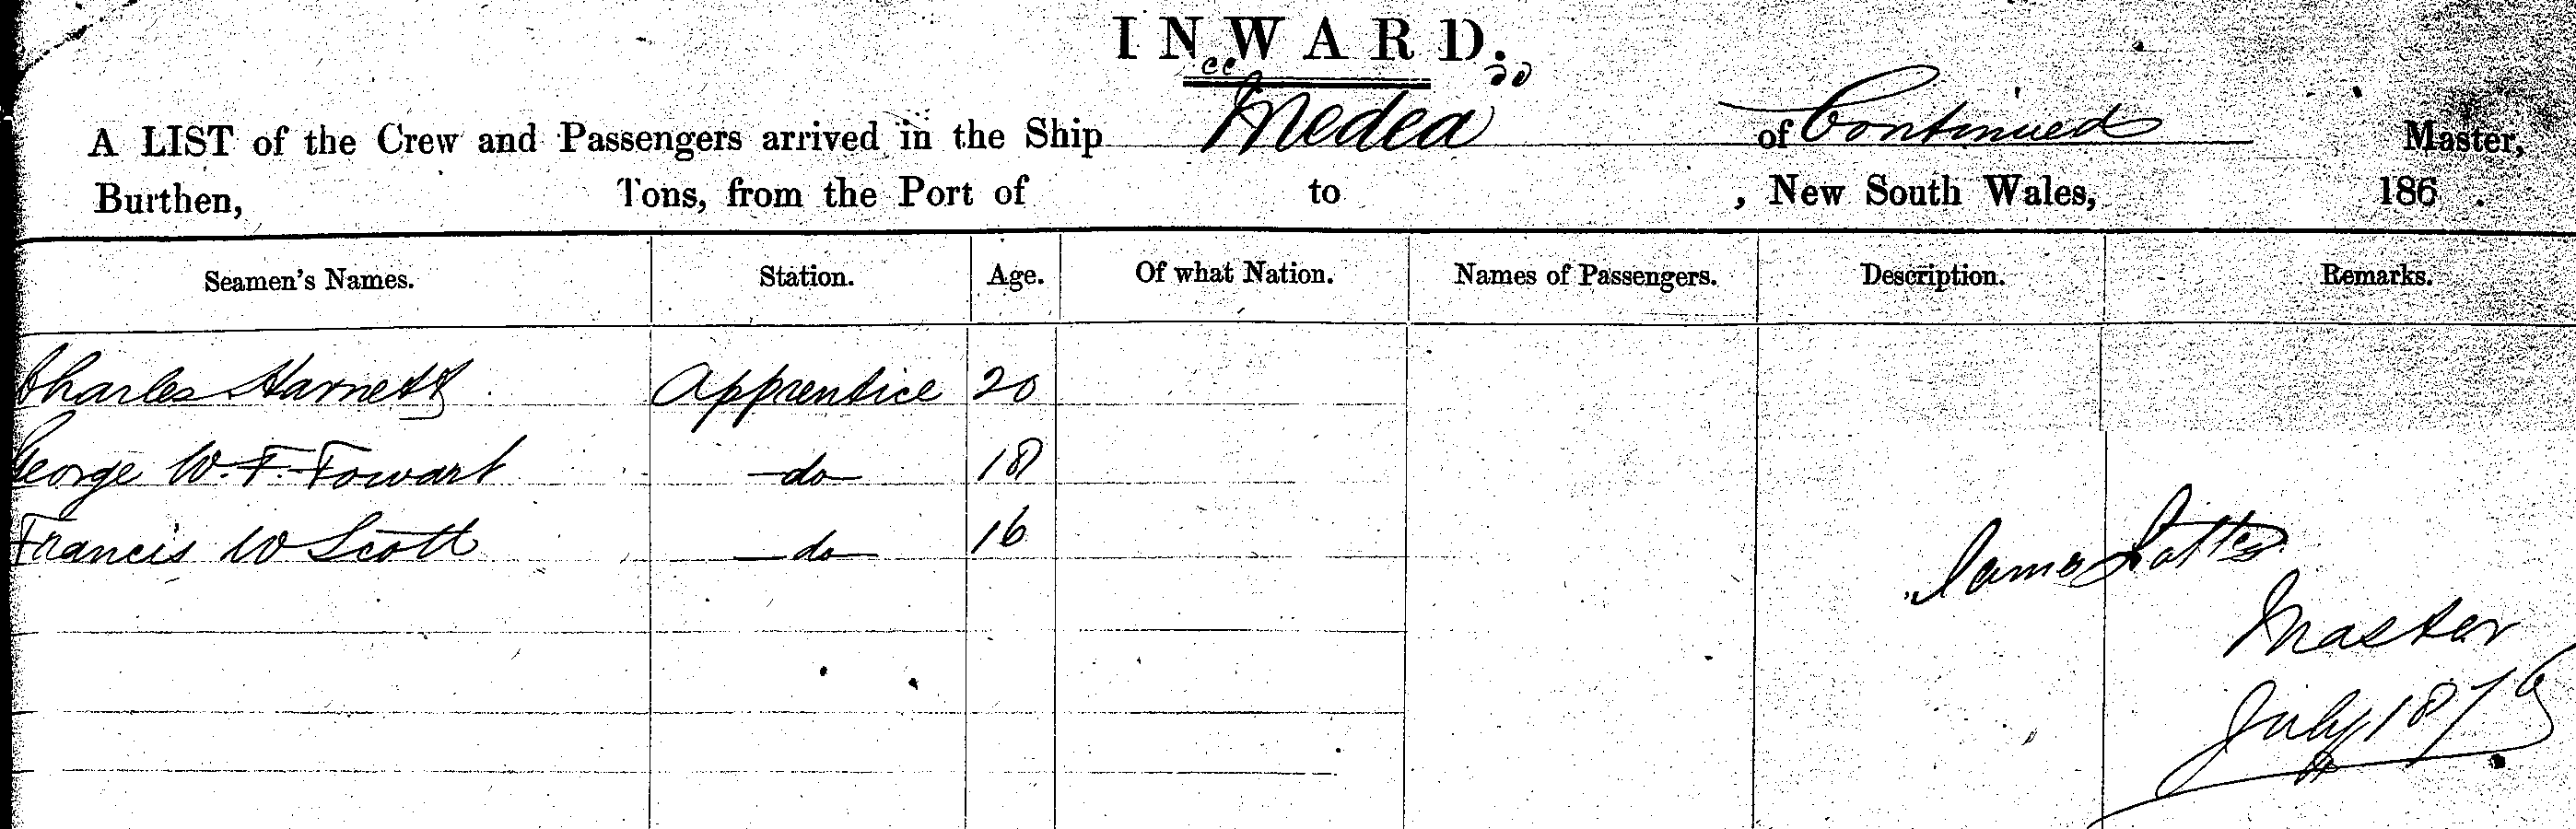 INWARD.
A LIST of the Crew and Passengers arrived in the Ship Medea of Continued Master,
Burthen, Tons, from the Port of to , New South Wales, 186 .
Seamen's Names. Station. Age. Of what Nation. Names of Passengers. Description. Remarks.
Charles Harnett Apprentice 20
George W. F. Fowart do 18
Francis W Scott do 16
James
Master
July 1876